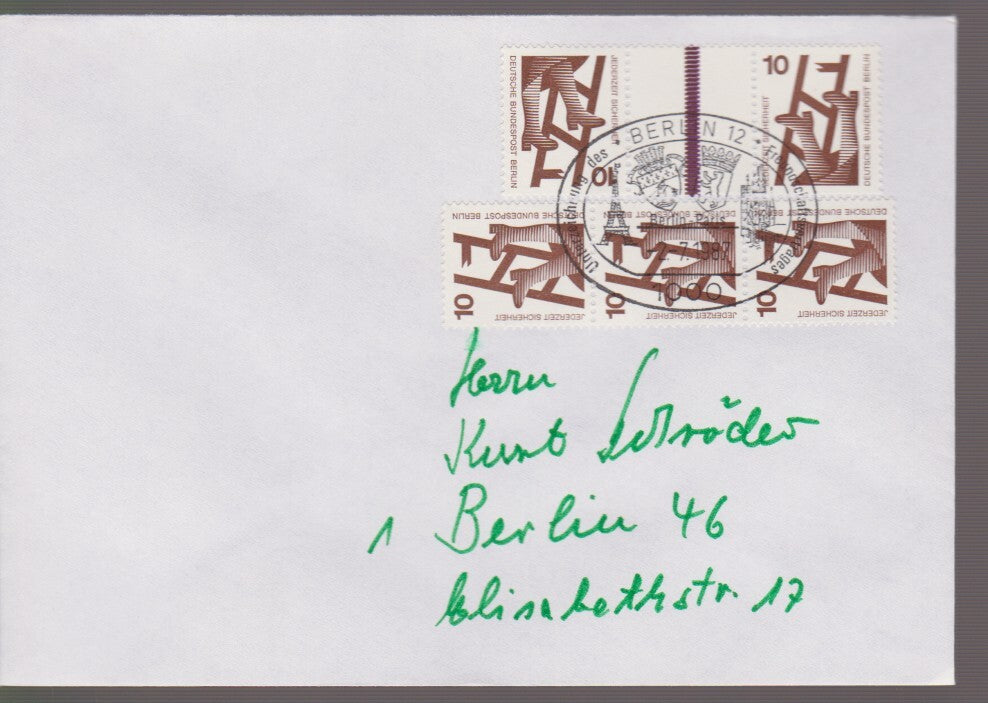 DEUTSCHE BUNDESPOST BERLIN
JEDERZEIT SICHERHEIT
10
10
JEDERZEIT SICHERHEIT
DEUTSCHE BUNDESPOST BERLIN
BERLIN 12
Unterzeichnung des Freundschaftsvertrages
Berlin-Paris
-2.-7.1987
1000
DEUTSCHE BUNDESPOST BERLIN
10
JEDERZEIT SICHERHEIT
DEUTSCHE BUNDESPOST BERLIN
10
JEDERZEIT SICHERHEIT
DEUTSCHE BUNDESPOST BERLIN
10
JEDERZEIT SICHERHEIT
Herrn
Kurt Schröder
1 Berlin 46
Elisabethstr. 17